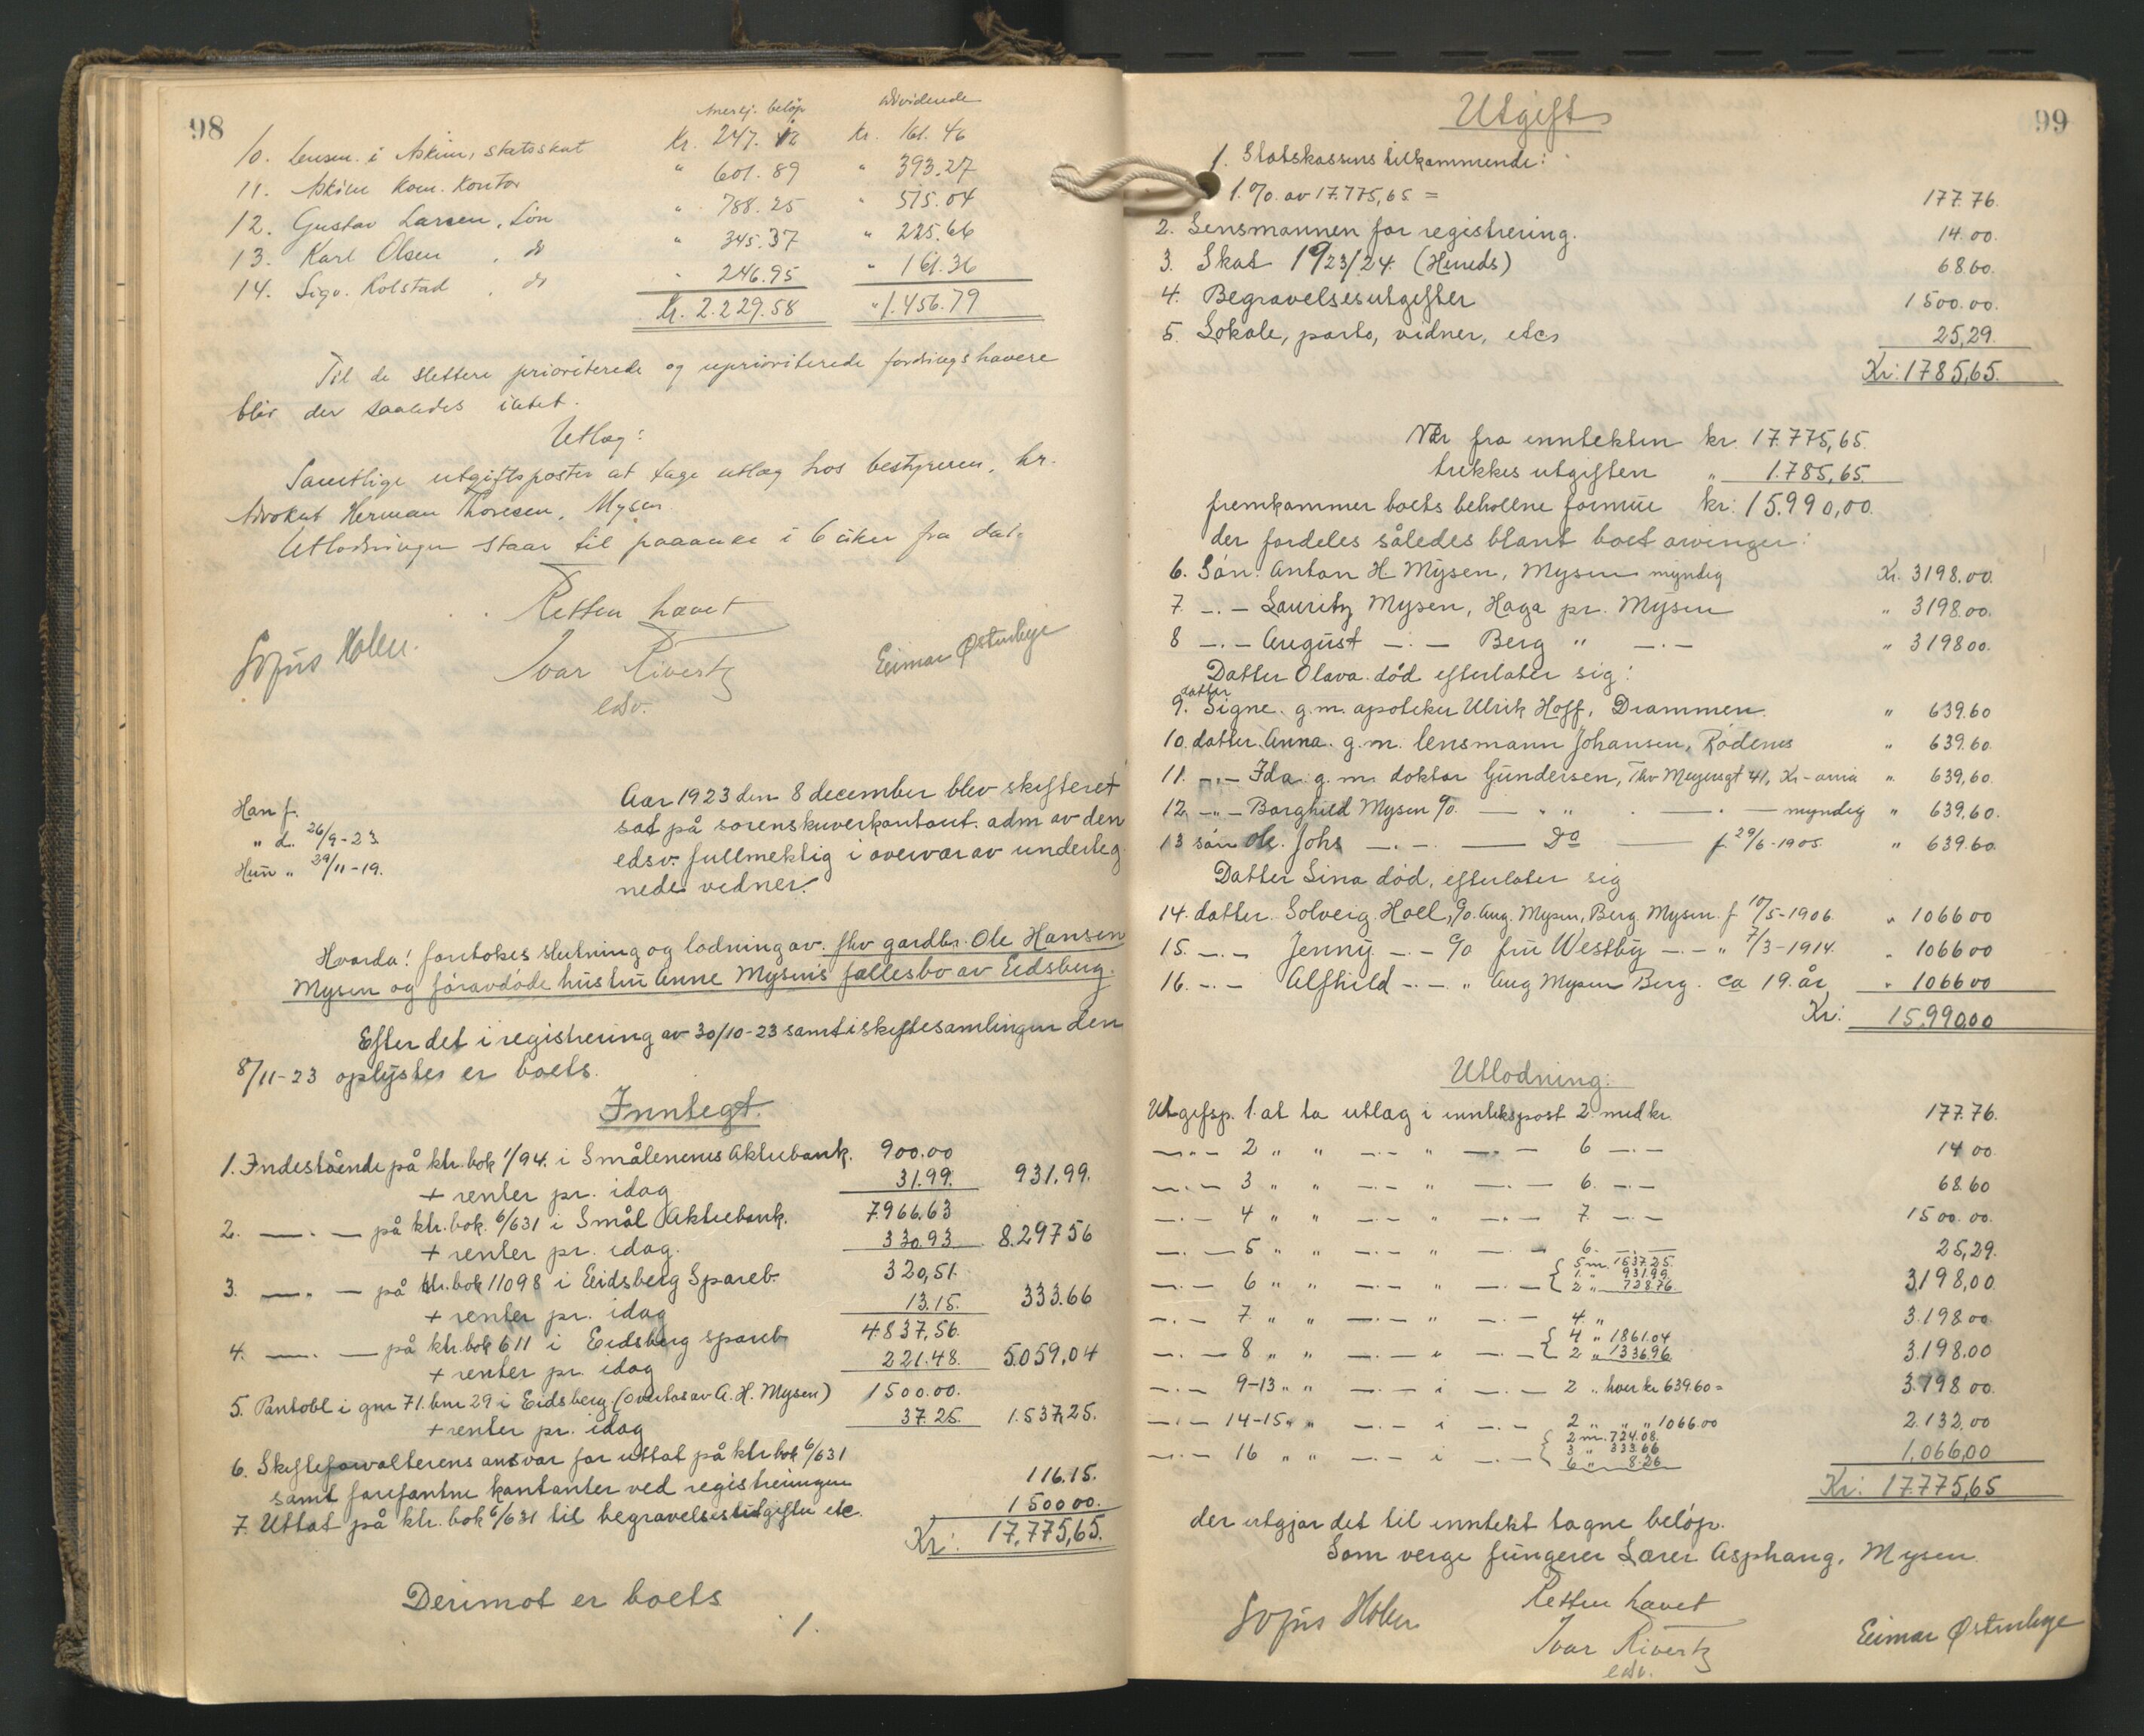 98
Anerkj. beløp Dividende
10. Lensm. i Askim, skatsskat Kr. 247.12 Kr. 161.46
11. Askim kom. kontor " 601.89 " 393.27
12. Gustav Larsen, Løn " 788.25 " 515.04
13. Karl Olsen , do " 345.37 " 225.66
14. Sigv. Kolstad , do " 246.95 " 161.36
Kr. 2.229.58 " 1.456.79
Til de slettere prioriterede og uprioriterede fordringshavere
blir der saaledes intet.
Utlæg:
Samtlige utgiftsposter at tage utlæg hos bestyreren, hr.
Advokat Herman Thoresen, Mysen.
Utlodningen staar til paaanke i 6 uker fra dat.
Retten hævet
Sofus Holen. Ivar Rivertz Einar Østenbye
edsv.
Han f.
" d. 26/9-23
Hun " 29/11-19.
Aar 1923 den 8 december blev skifteret
sat på sorenskriverkontoret. adm av den
edsv. fullmektig i overvær av underteg
nede vidner.
Hvorda! foretokes slutning og lodning av fhv gardbr. Ole Hansen
Mysen og föravdöde hustru Anne Mysens fællesbo av Eidsberg.
Efter det i registrering av 30/10-23 samt i skiftesamlingen den
8/11-23 oplystes er boets.
Inntegt.
1. Indestående på ktr. bok 1/94. i Smålenenes Aktiebank. 900.00
+ renter pr. idag 31.99. 931.99.
2. —.— på ktr. bok. 6/631 i Smål Aktiebank. 7966.63
+ renter pr. idag. 330.93 8.297 56
3. —.— på ktr. bok 11098 i Eidsberg Spareb. 320,51.
+ renter pr. idag 13.15. 333.66
4. —.— på ktr. bok 611 i Eidsberg spareb 4837,56.
+ renter pr. idag 221.48. 5059,04
5. Pantobl i gnr 71. bnr 29 i Eidsberg (overtas av A. H. Mysen) 1500.00.
+ renter pr. idag 37.25. 1.537,25.
6. Skifteforvalterens ansvar for uttat på ktr bok 6/631
samt forefantne kontanter ved registreringen 116.15.
7. Uttat på ktr. bok 6/631 til begravelsesutgifter etc. 1500 00.
Kr: 17,775,65.
Derimot er boets
1.
99
Utgift
1. Statskassens tilkommende:
1.% av 17.775,65 = 177.76.
2. Lensmannen for registrering. 14.00.
3. Skat 1923/24. (Herreds) 68.60.
4. Begravelsesutgifter 1500.00.
5. Lokale, porto, vidner, etc. 25,29.
Kr: 1785,65.
Når fra inntekten kr. 17.775,65.
trekkes utgiften " 1.785,65.
fremkommer boets beholdne formue kr. 15.990,00.
der fordeles således blant boets arvinger:
6. Sön: Anton H. Mysen, Mysen myndig Kr. 3198.00.
7 —.— Lauritz Mysen, Haga pr. Mysen " 3198.00.
8 —.— August —.— Berg " —.— " 3198 00.
Datter Olava. död efterlater sig:
9. datter Signe. g.m. apoteker Ulrik Hoff, Drammen. " 639.60
10. datter. Anna. g.m. lensmann Johansen, Rödenes " 639.60.
11. —.— Ida. g.m. doktor Gundersen, Thv Meyersgt 41, Kr-ania " 639,60.
12. —.— Borghild Mysen c/o. — " " — . — myndig " 639,60.
13 sön Ole. Johs —.— — Do — f. 29/6-1905. " 639.60
Datter Lina död, efterlater sig
14. datter. Solveig. Hoel, c/o. Aug. Mysen, Berg. Mysen. f 10/5-1906. " 1066 00
15. —.— Jenny —.— c/o fru Westby —.— " 7/3-1914. " 1066 00
16. —.— Alfhild —.— " Aug Mysen Berg. ca 19. år " 1066 00
Kr: 15,990.00
Utlodning:
Utgiftsp. 1. at ta utlæg i inntektspost 2. med kr. 177.76.
—.— 2 " " —.— " —.— 6 —.— 14 00
—.— 3 " " —.— " —.— 6. —.— 68.60
—.— 4 " " —.— " —.— 7. —.— 1500.00.
—.— 5 " " —.— " —.— 6. —.— 25,29.
—.— 6 " " —.— " —.— { 5 m. 1537.25. 1. " 931.99 2 " 728.76 3198,00.
—.— 7 " " —.— " —.— 4. " 3.198 00
—.— 8 " " —.— " —.— { 4 " 1861.04 2 " 1336.96 3.198,00
—.— 9-13 " " —.— i —.— 2 " hver kr 639.60 = 3.198 00.
—.— 14-15 " " —.— i —.— 2 " " " 1066.00 2.132,00
—.— 16 " " —.— i —.— { 2 m. 724.08. 3 " 333.66 6 " 8.26 1,066,00
Kr: 17.775,65
der utgjør det til inntekt tagne beløp.
Som verge fungerer Lærer Asphaug, Mysen.
Retten hævet
Sofus Holen Ivar Rivertz Einar Østenbye
edsv.